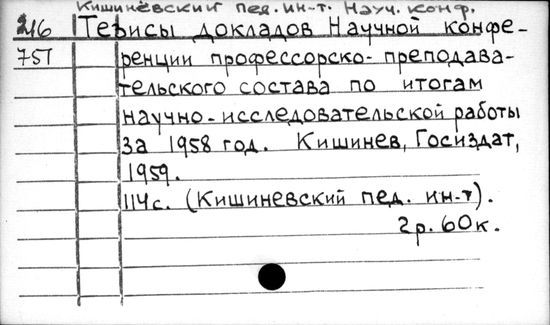 Кишинёвский пед. ин-т. Науч. конф.
216 Тезисы докладов Научной конфе-
75Т ренции профессорско-преподава-
тельского состава по итогам
научно-исследовательской работы
за 1958 год. Кишинев, Госиздат,
1959.
114с. (Кишиневский пед. ин-т).
2р. 60к.